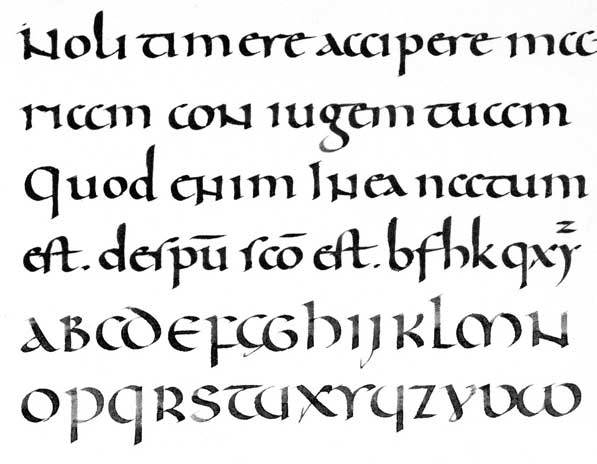 Noli timere accipere ma
riam con iugem tuam
Quod enim Inea natum
eſt. deſpū ſcō eſt. bfhkqxyz
ABCDEFGGhIJKLMN
OPqRSTUXYYZYVW